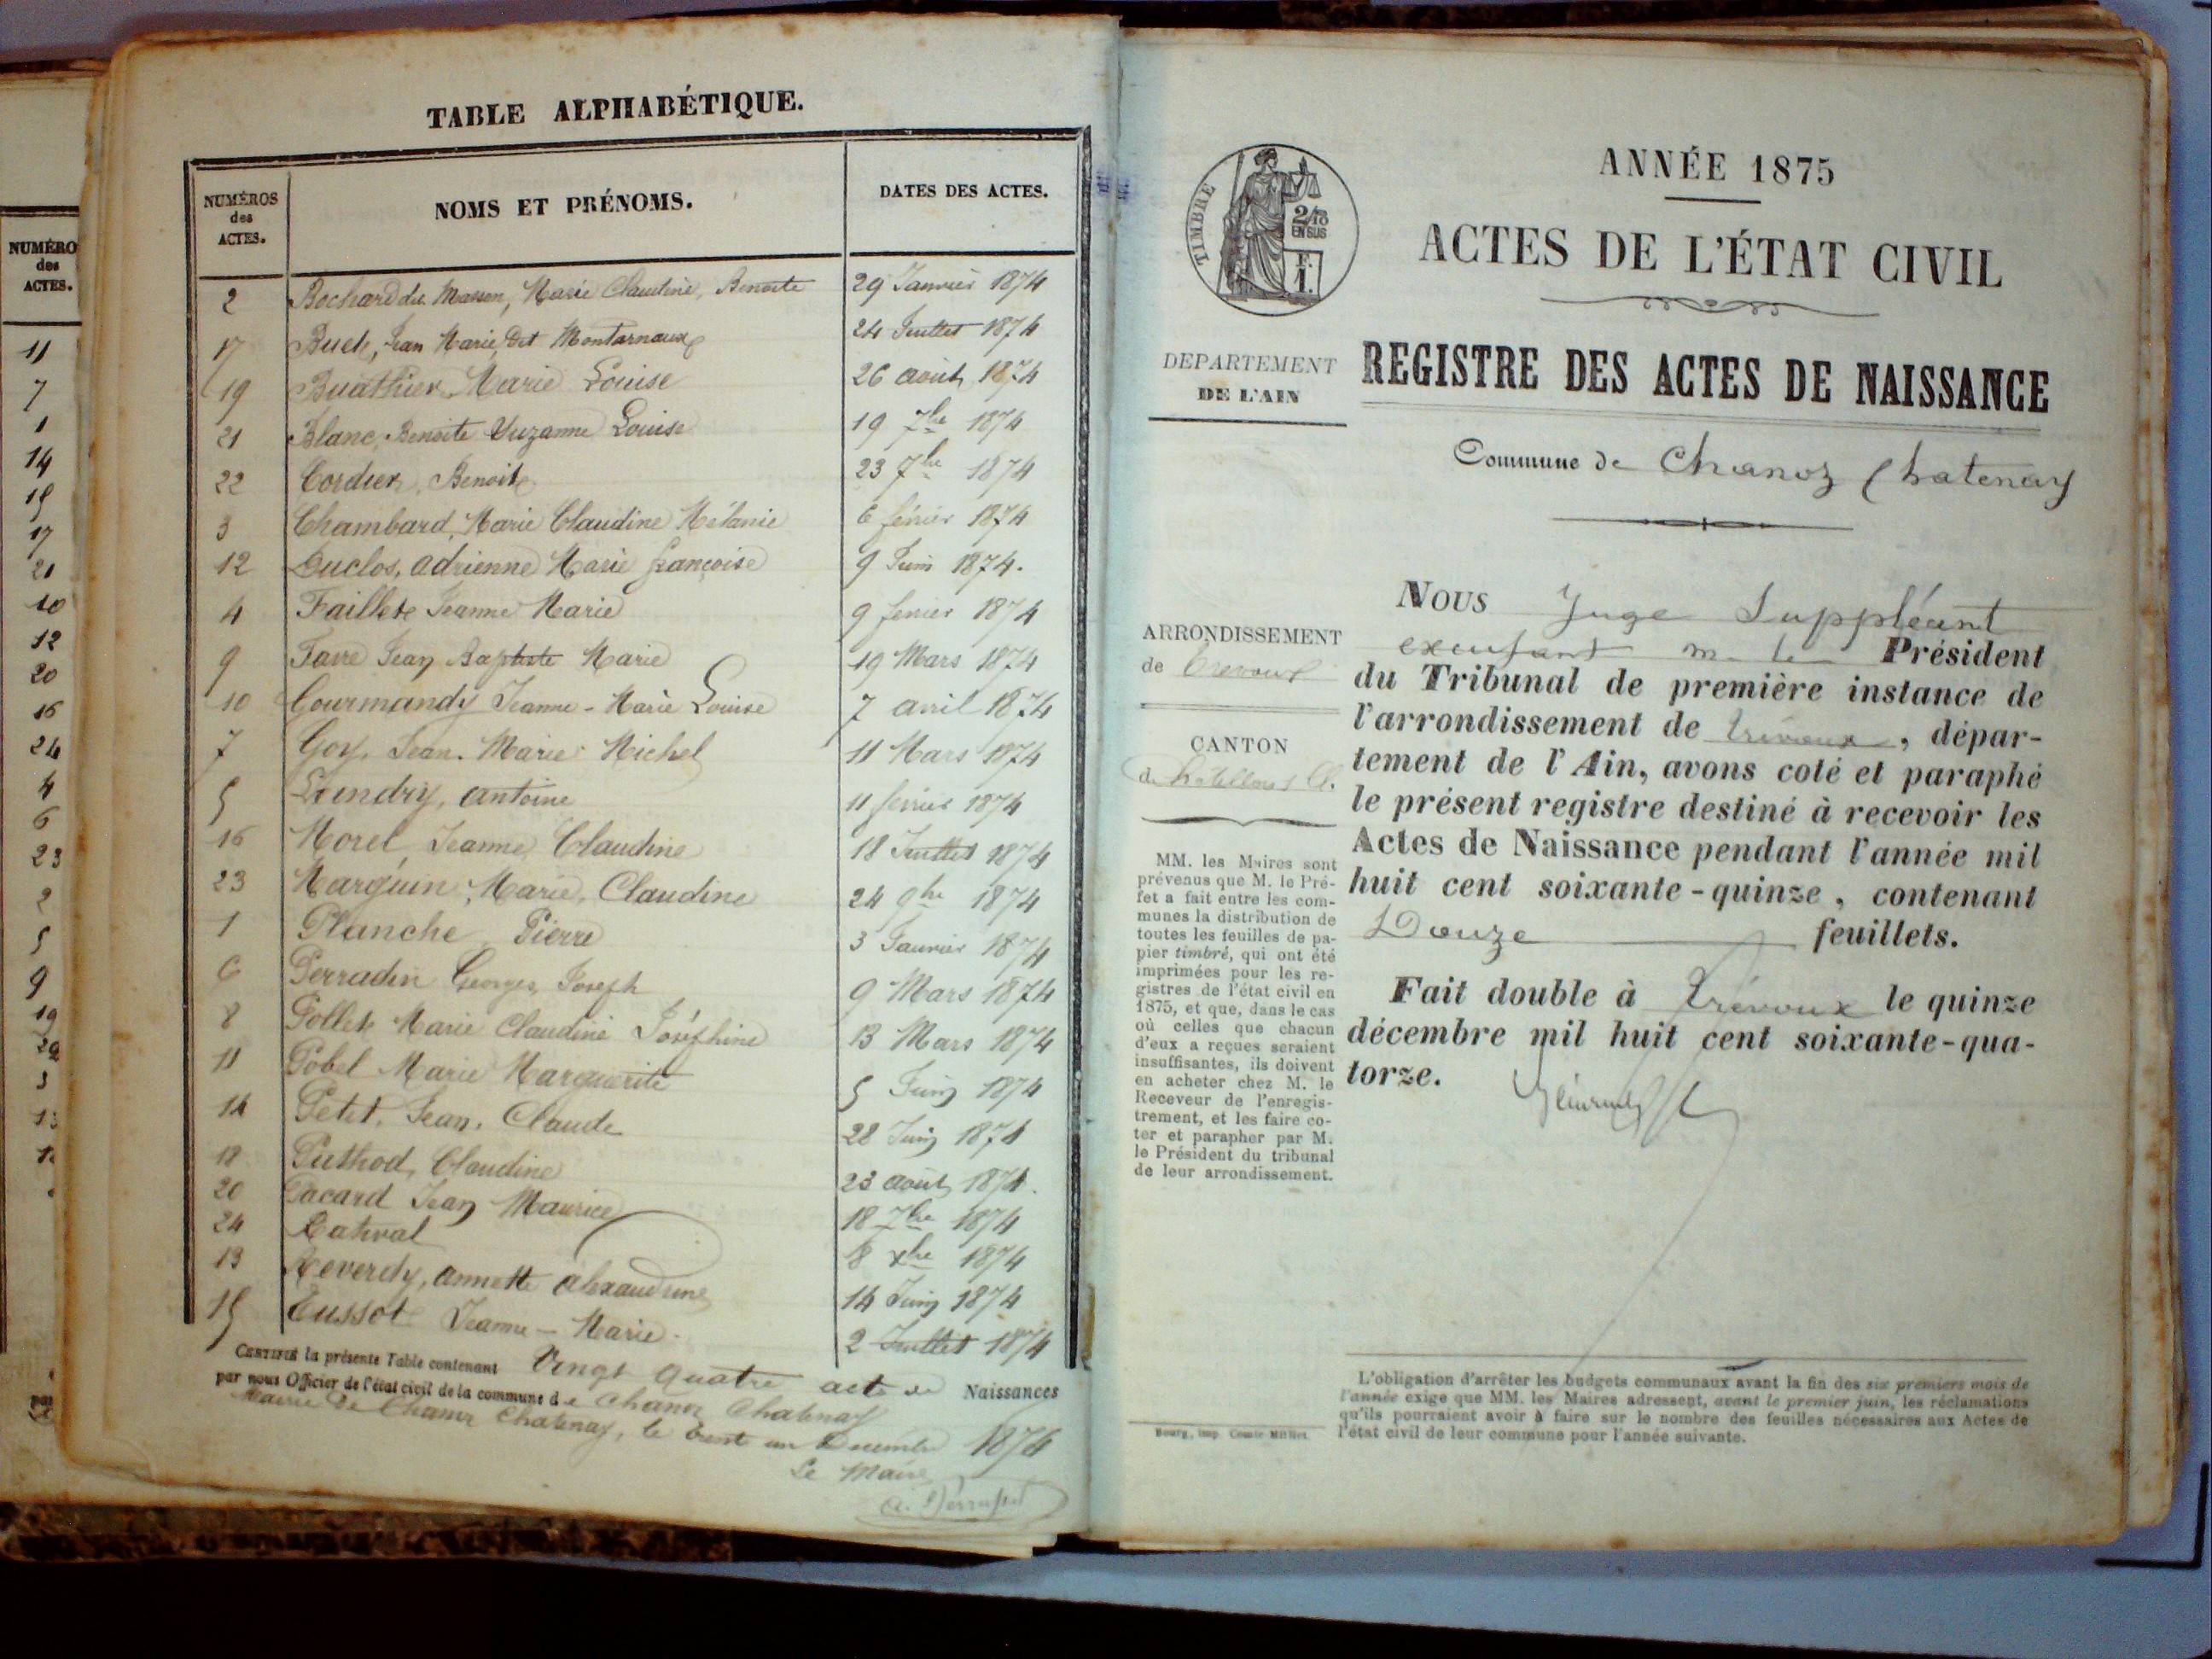 NUMÉRO
des
ACTES.
11
7
1
14
15
17
21
10
12
20
16
24
4
6
23
2
5
9
19
TABLE ALPHABÉTIQUE.
NUMÉROS des ACTES. NOMS ET PRÉNOMS. DATES DES ACTES.
2 Bochard du Marie Claudine, Benoite 29 Janvier 1874
17 Buch, Jean Marie, Dit Montarnaux 24 Juillet 1874
19 Buathier Marie Louise 26 août 1874
21 Blanc, Benoite Suzanne Louise 19 7bre 1874
22 Cordier, Benoit 23 7bre 1874
3 Chambard, Marie Claudine Mélanie 6 février 1874
12 Duclos, Adrienne Marie Françoise 9 Juin 1874.
4 Faillet Jeanne Marie 9 fevrier 1874
9 Favre Jean Baptiste Marie 19 Mars 1874
10 Gourmandy Jeanne-Marie Louise 7 avril 1874
7 Goy, Jean-Marie Michel 11 Mars 1874
5 Antoine 11 fevrier 1874
16 Morel, Jeanne Claudine 18 Juillet 1874
23 Marguin, Marie, Claudine 24 9bre 1874
1 Planche, Pierre 3 Janvier 1874
6 Perradin Georges, Joseph 9 Mars 1874
8 Pollet Marie Claudine Joséphine 13 Mars 1874
11 Pobel Marie Marguerite 5 Juin 1874
14 Petit, Jean, Claude 28 Juin 1874
18 Puthod, Claudine 23 août 1874.
20 Pacard Jean Maurice 18 7bre 1874
24 8 xbre 1874
13 Reverdy, Annette Alexandrine 14 Juin 1874
15 Tussot Jeanne-Marie. 2 Juillet 1874
CERTIFIÉ la présente Table contenant Vingt quatre acte de Naissances
par nous Officier de l'état civil de la commune de Chanoz Chatenay
Mairie de Chanoz Chatenay, le trente un Decembre 1874
Le Maire
TIMBRE
2/10
EN SUS
F.
1.
ANNÉE 1875
ACTES DE L'ÉTAT CIVIL
DEPARTEMENT
DE L'AIN
REGISTRE DES ACTES DE NAISSANCE
Commune de Chanoz Chatenay
ARRONDISSEMENT
de Trévoux
CANTON
de Chatillon s Ch.
MM. les Maires sont
prévenus que M. le Pré-
fet a fait entre les com-
munes la distribution de
toutes les feuilles de pa-
pier timbré, qui ont été
imprimées pour les re-
gistres de l'état civil en
1875, et que, dans le cas
où celles que chacun
d'eux a reçues seraient
insuffisantes, ils doivent
en acheter chez M. le
Receveur de l'enregis-
trement, et les faire co-
ter et parapher par M.
le Président du tribunal
de leur arrondissement.
NOUS Juge Suppléant
m. le Président
du Tribunal de première instance de
l'arrondissement de Trévoux, dépar-
tement de l'Ain, avons coté et paraphé
le présent registre destiné à recevoir les
Actes de Naissance pendant l'année mil
huit cent soixante-quinze, contenant
Douze feuillets.
Fait double à Trévoux le quinze
décembre mil huit cent soixante-qua-
torze.
L'obligation d'arrêter les budgets communaux avant la fin des six premiers mois de
l'année exige que MM. les Maires adressent, avant le premier juin, les réclamations
qu'ils pourraient avoir à faire sur le nombre des feuilles nécessaires aux Actes de
l'état civil de leur commune pour l'année suivante.
Bourg, imp. Comte Milliet